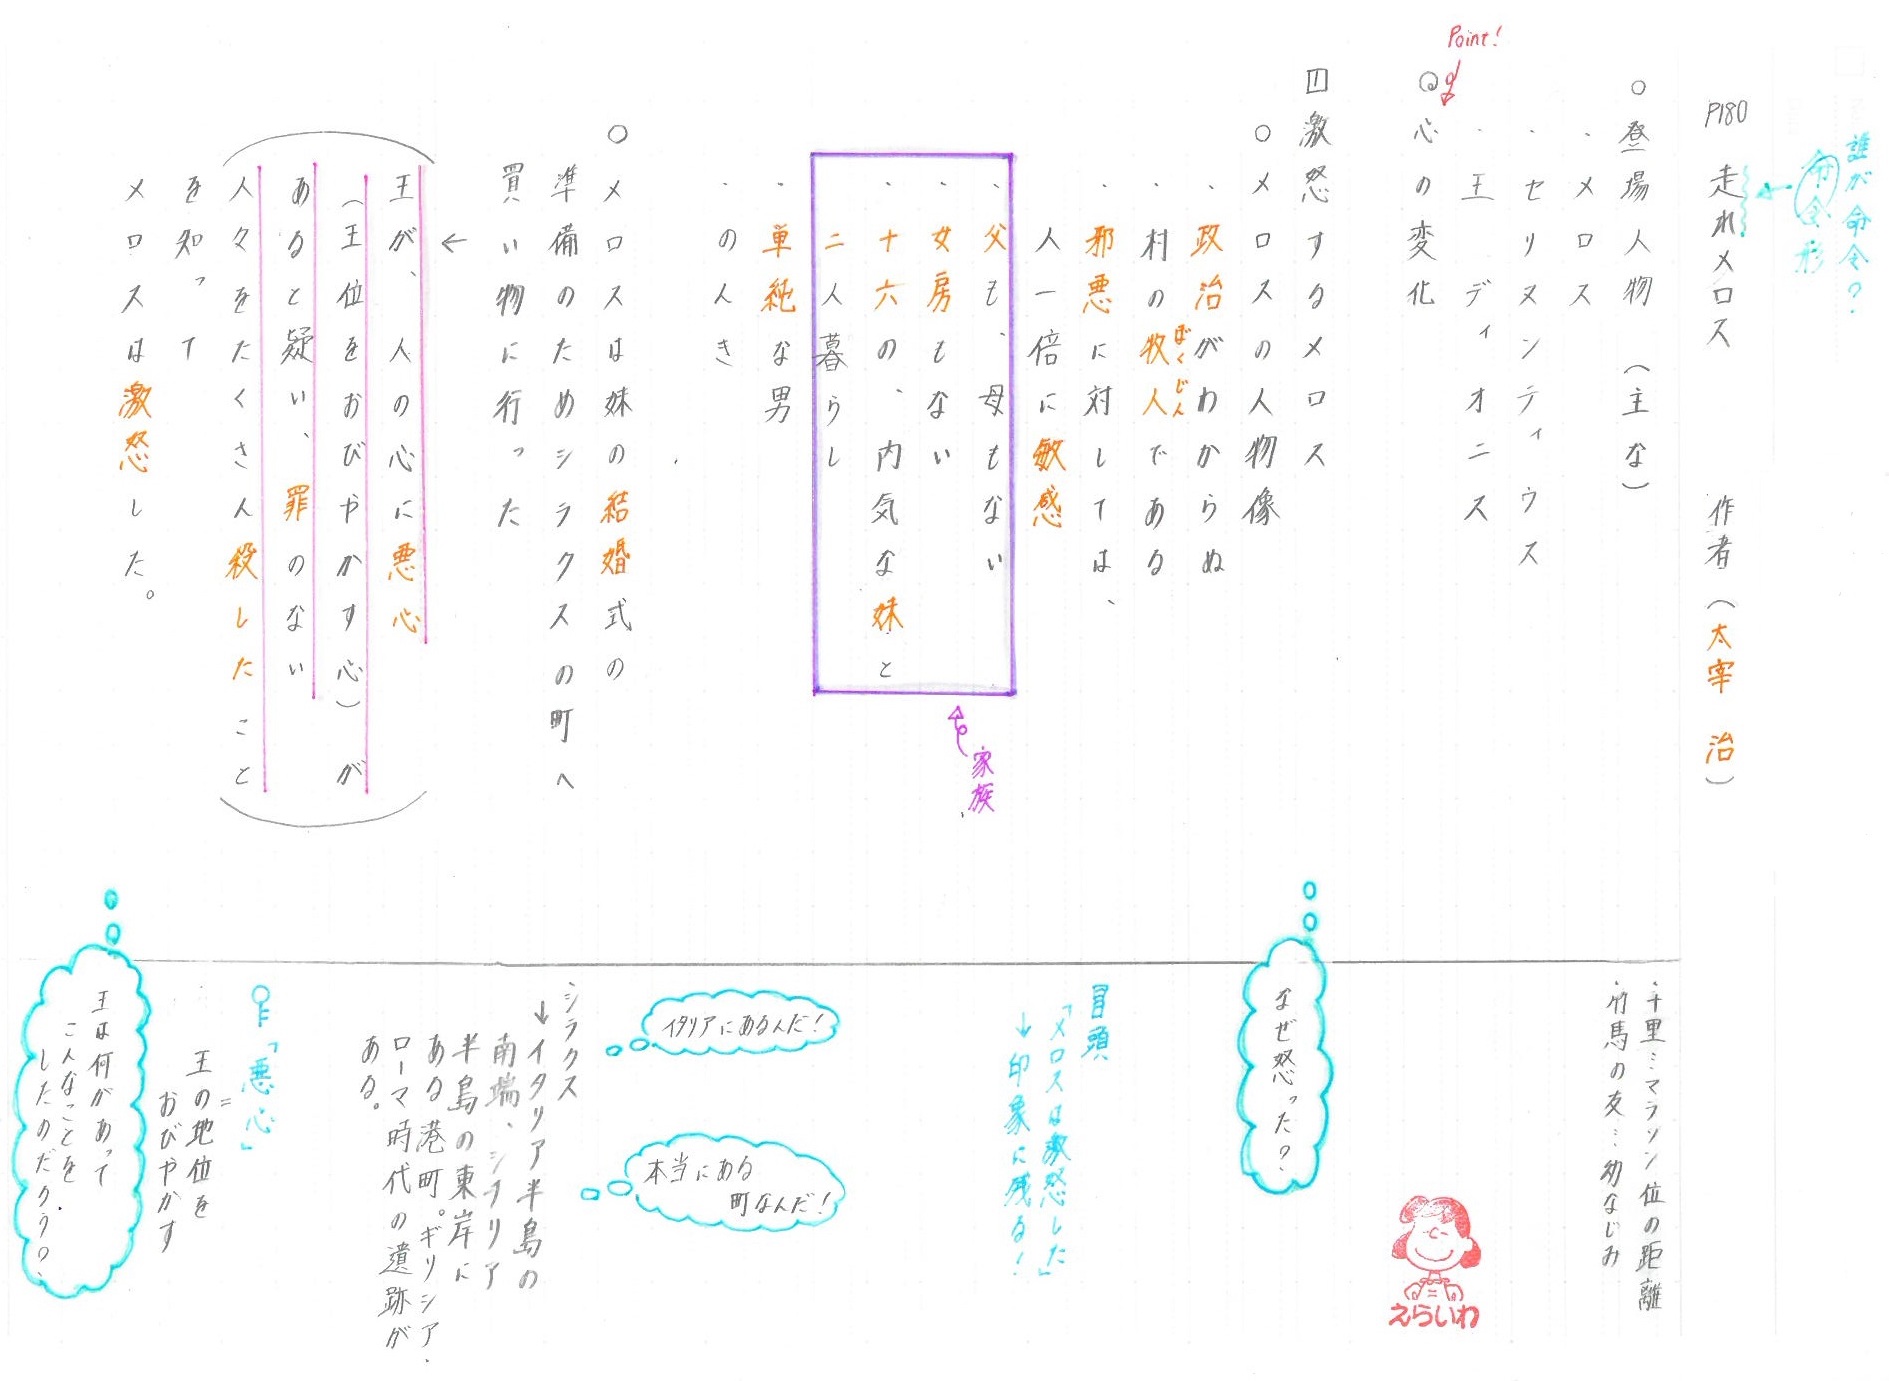 誰が命令？
命令形
P180 走れメロス 作者（太宰 治）
○登場人物（主な）
・メロス
・セリヌンティウス
・王 ディオニス
Point!
◎心の変化
1 激怒するメロス
○メロスの人物像
・政治がわからぬ
村の牧人である
ぼくじん
・邪悪に対しては、
人一倍に敏感
・父も、母もない
・女房もない
・十六の、内気な妹と
二人暮らし
家族
・単純な男
・のんき
○メロスは妹の結婚式の
準備のためシラクスの町へ
買い物に行った
↓
王が、人の心に悪心
（王位をおびやかす心）が
あると疑い、罪のない
人々をたくさん殺したこと
を知って
メロスは激怒した。
・千里…マラソン位の距離
・竹馬の友…幼なじみ
えらいわ
なぜ怒った？
冒頭
「メロスは激怒した」
→印象に残る！
イタリアにあるんだ！
本当にある
町なんだ！
シラクス
→イタリア半島の
南端、シチリア
半島の東岸に
ある港町。ギリシア・
ローマ時代の遺跡が
ある。
「悪心」
＝
王の地位を
おびやかす
王は何があって
こんなことを
したのだろう？